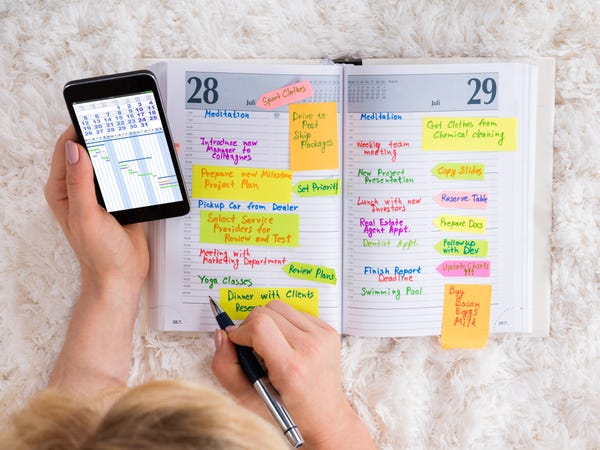 28
Juli
Sport Clothes
Meditation
Drive to
Post
Ship
Packages
Introduce new
Manager to
Collegues
Prepare new Milestone
Project Plan
Set Priority
Pickup Car from Dealer
Select Service
Providers for
Review and Test
Meeting with
Marketing Department
Review Plans
Yoga Classes
Dinner with Clients
28.7.
29
Juli
Meditation
Got Clothes from
Chemical cleaning
Weekly team
meeting
Copy Slides
New Project
Presentation
Reserve Table
Lunch with new
Investors
Real Estate
Agent Appt.
Prepare Docs
Dentist Appt.
Followup
with Dev
Update Charts
Finish Report
Deadline
Swimming Pool
Buy
Bacon
Eggs
Milk
29.7.